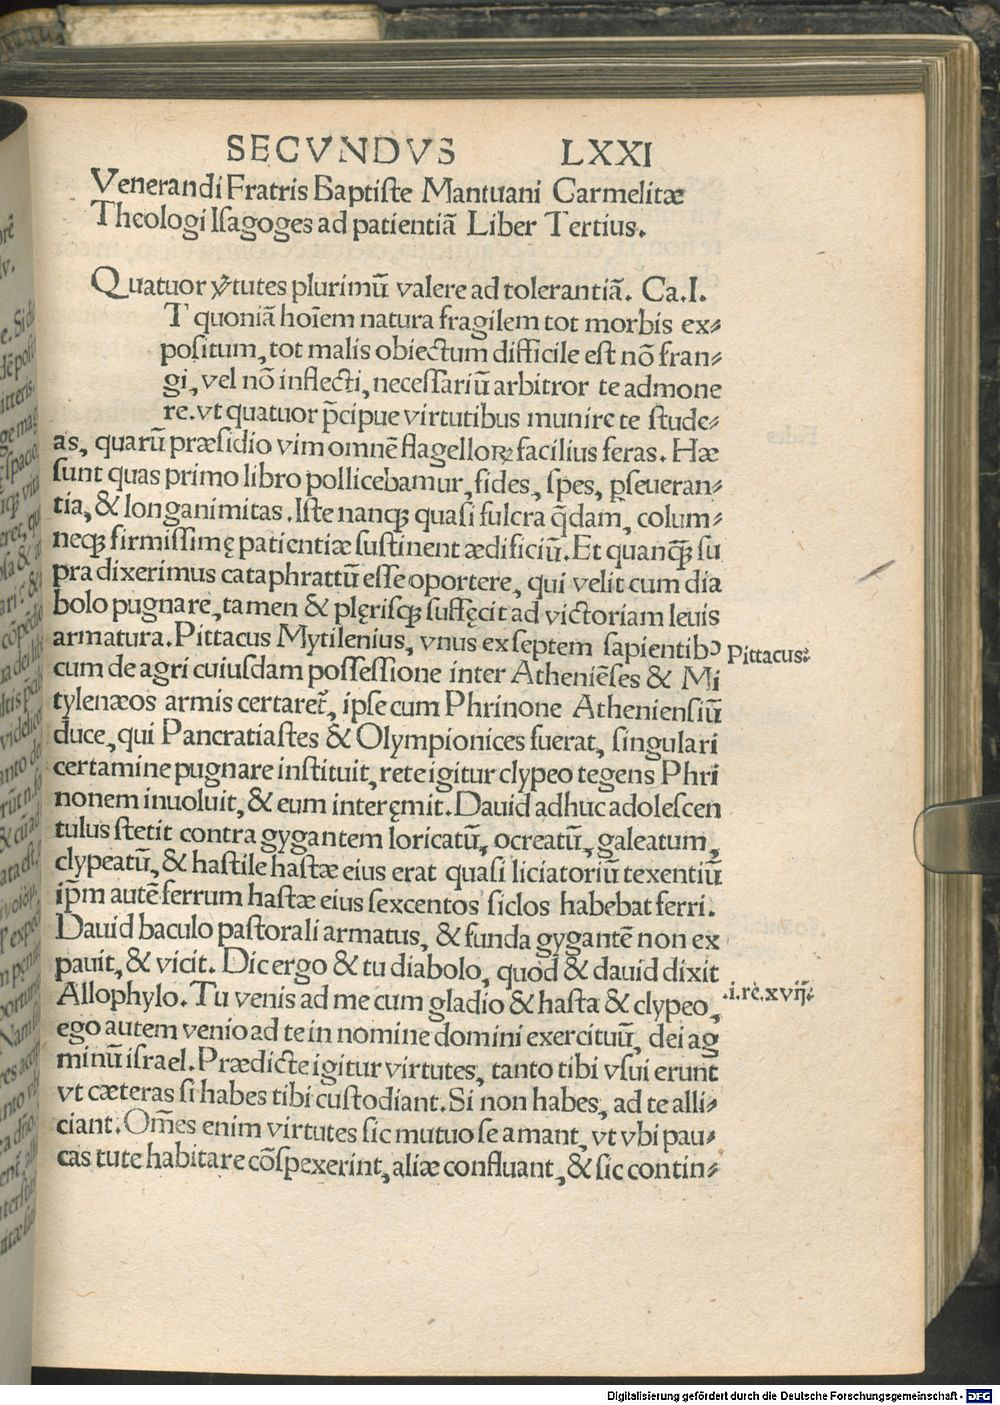 SECVNDVS LXXI
Venerandi Fratris Baptiste Mantuani Carmelitæ
Theologi Isagoges ad patientiā Liber Tertius.
Quatuor v̄tutes plurimū valere ad tolerantiā. Ca.I.
T quoniā hoīem natura fragilem tot morbis ex⸗
positum, tot malis obiectum difficile est nō fran⸗
gi, vel nō inflecti, necessariū arbitror te admone
re.vt quatuor p̄cipue virtutibus munire te stude⸗
as, quarū præsidio vim omnē flagelloꝝ facilius feras. Hæ
sunt quas primo libro pollicebamur, fides, spes, ꝑseueran⸗
tia, & longanimitas. Iste nanqꝫ quasi fulcra q̄dam, colum⸗
neqꝫ firmissimę patientiæ sustinent ædificiū. Et quanq̄ꝫ su
pra dixerimus cataphrattū esse oportere, qui velit cum dia
bolo pugnare, tamen & plęrisqꝫ suffęcit ad victoriam leuis
armatura. Pittacus Mytilenius, vnus ex septem sapientibꝰ
Pittacus⸗
cum de agri cuiusdam possessione inter Atheniēses & Mi
tylenæos armis certaret̄, ipse cum Phrinone Atheniensiū
duce, qui Pancratiastes & Olympionices fuerat, singulari
certamine pugnare instituit, rete igitur clypeo tegens Phri
nonem inuoluit, & eum interęmit. Dauid adhuc adolescen
tulus stetit contra gygantem loricatū, ocreatū, galeatum,
clypeatū, & hastile hastæ eius erat quasi liciatoriū texentiū
ip̄m autē ferrum hastæ eius sexcentos siclos habebat ferri.
Dauid baculo pastorali armatus, & funda gygantē non ex
pauit, & vicit. Dic ergo & tu diabolo, quod & dauid dixit
Allophylo. Tu venis ad me cum gladio & hasta & clypeo,
.i.rē.xvij⸗
ego autem venio ad te in nomine domini exercituū, dei ag
minū israel. Prædicte igitur virtutes, tanto tibi vsui erunt
vt cæteras si habes tibi custodiant. Si non habes, ad te alli⸗
ciant. Om̄es enim virtutes sic mutuo se amant, vt vbi pau⸗
cas tute habitare cōspexerint, aliæ confluant, & sic contin⸗
Digitalisierung gefördert durch die Deutsche Forschungsgemeinschaft - DFG